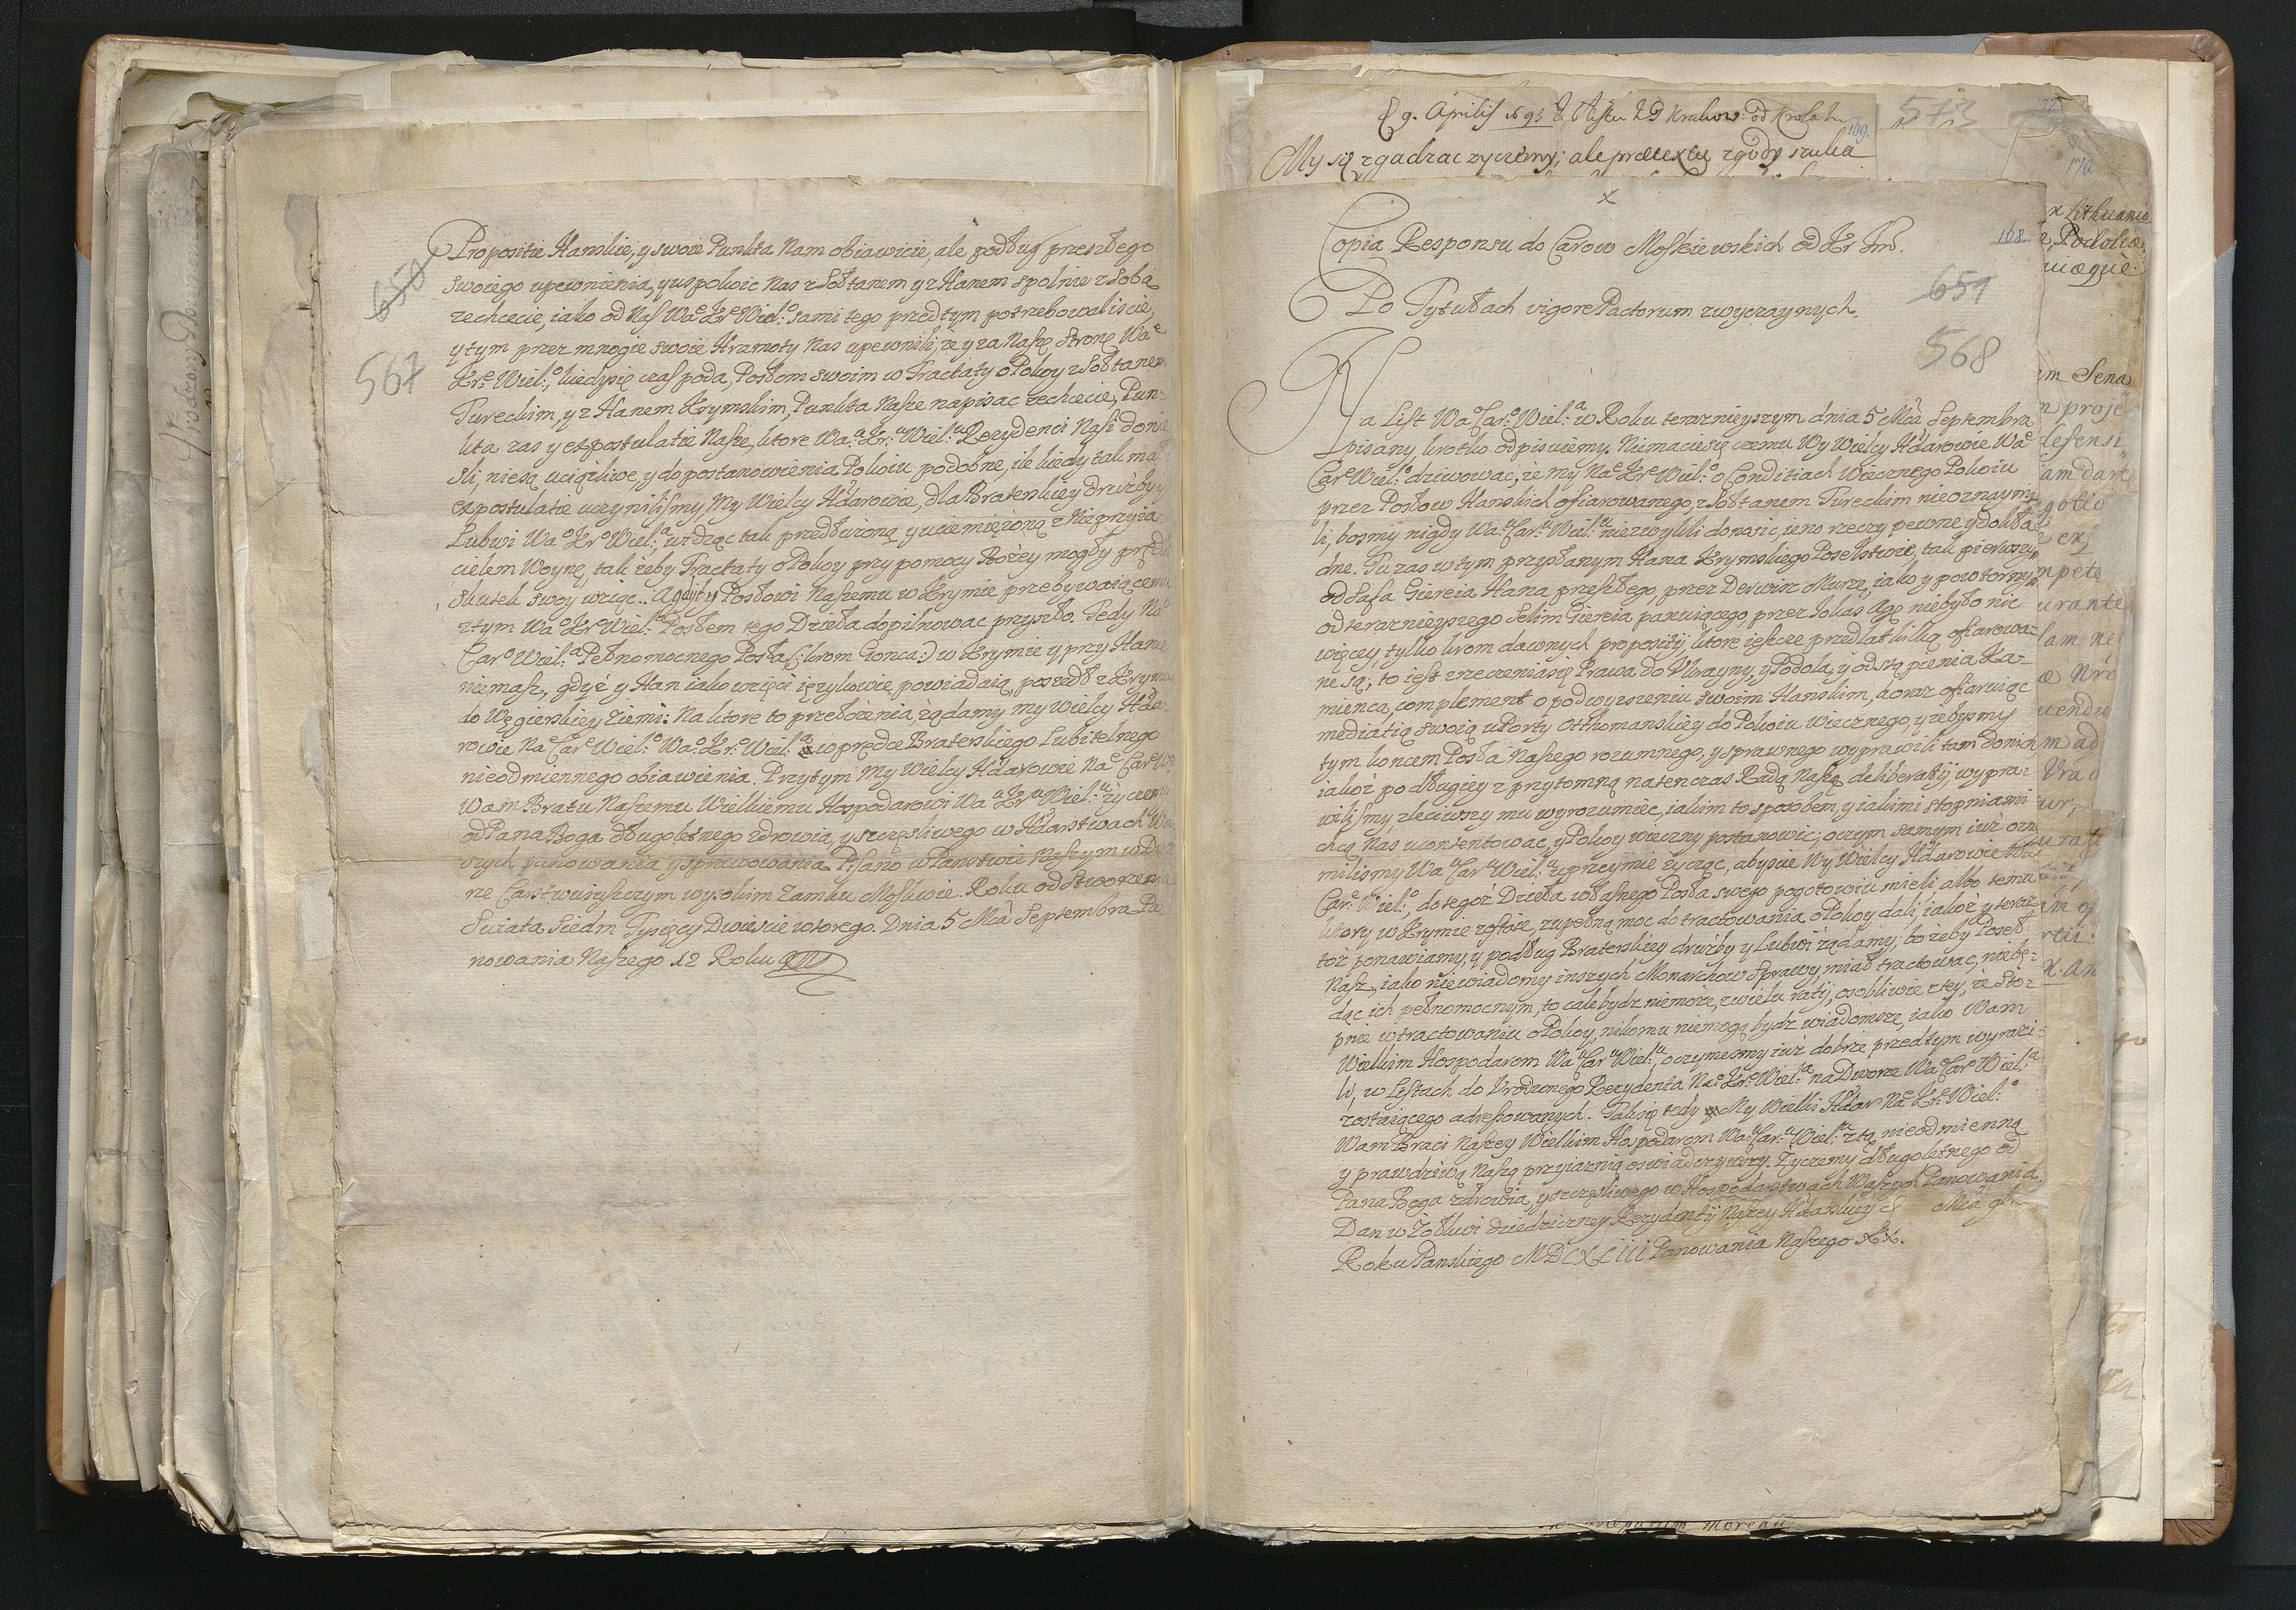 650
567
Propositie Hanskie, y swoie Punkta Nam obiawicie, ale podług przeszłego
swoiego upewnienia, y uspokoic Nas z Sołtanem y z Hanem spolnie z Sobą
zechcecie, iako od Nas Waᵉ Krᵉ Wiel:ᵒ sami tego przedtym potrzebowaliscie,
y tym przez mnogie swoie Hramoty Nas upewnili, ze y za Naszę stronę Waᵉ
Krᵉ Wiel:ᵒ, kiedy się czas poda, Posłom swoim w Tractaty o Pokoy z Sołtanem
Tureckim, y z Hanem Krymskim, Punkta Nasze napisac zechcecie, Pun-
kta zas y expostulatie Nasze, ktore Waᵃ Krᵃ Wiel:ᵃ Rezydenci Nasi donie
sli, niesą uciązliwe, y do postanowienia Pokoiu podobne, ile kiedy tak
expostulatie uczynilismy, My Wielcy Hdarowie, dla Braterskiey druzby y
Lubwi Waᵒ Krᵒ Wiel:ᵃ, widząc tak przedłuzoną y uciemięzoną z Nieprzyia-
cielem Woynę, tak zeby Tractaty o Pokoy przy pomocy Bozey mogły
skutek swoy wziąc. Agdyty Posłowi Naszemu w Krymie przebywaiącemu
z tym Waᵒ Krᵒ Wiel:ᵃ Posłem tego Dzieła dopilnowac przyszło. Tedy Naᵒ
Carᵒ Wiel:ᵃ Pełnomocnego Posła (: krom Gonca :) w Krymie y przy Hanie
niemasz, gdyż y Han iako wzięci ięzykowie powiadaią, poszedł z Krymu
do Węgierskiey Ziemi. Na ktore to przełozenia, ządamy my wielcy Hda-
rowie Naᵉ Carᵉ Wiel:ᵒ Waᵒ Krᵒ Wiel:ᵃ w prędce Braterskiego Lubitelnego
nieodmiennego obiawienia. Przytym My Wielcy Hdarowie Naᵉ Carᵉ
Wam Bratu Naszemu Wielkiemu Hospodarowi Waᵘ Krᵘ Wiel:ᵘ zyczemy
od Pana Boga długoletnego zdrowia, y szczęsliwego w Hdarstwach
szych panowania y sprawowania. Pisano w Panstwie Naszym w Dwo
rze Carstwuiyszczym wysokim Zamku Moskwie. Roku od Stworzenia
Swiata Siedm Tysięcy Dwiescie wtorego. Dnia 5 Mca Septembra Pa
nowania Naszego 12 Roku
9. Aprilis 1693
169.
My się zgadzac zyczemy; ale praetextu zgody szuka
573
170
168.
651
568
Copia Responsu do Carow Moskiewskich od Kr Jm.
Po Tytułach vigore Pactorum zwyczaynych.
Na List Waᵒ Carᵒ Wiel:ᵃ w Roku terazneyszym dnia 5 Mca Septembra
pisany krotko odpisuiemy. Niemaciesię czemu Wy Wielcy Hdarowie Waᵉ
Carᵉ Wiel:ᵒ dziwowac, ze my Naᵉ Krᵉ Wiel:ᵒ o Conditiach Wiecznego Pokoiu
przez Posłow Hanskich ofiarowanego, z Sołtanem Tureckim nieoznaymi-
li, bosmy nigdy Waᵘ Carᵘ Wiel:ᵘ niezwykli donosic, ieno rzeczy pewne y dokła
dne. Tu zas w tym przysłanym Hana Krymskiego Poselstwie, tak pierwszym
od Safa Giereia Hana przeszłego, przez Derwisz Murzę, iako y powtornym
od teraznieyszego Selim Giereia panuiącego, przez Sokas Agę niebyło nic
więcey, tylko krom dawnych propozitij, ktore ieszcze przed lat kilką ofiarowa-
ne są; to iest zrzeczeniasię Prawa do Ukrainy, y Podola, y odstąpienia Ka-
mienca, complement o podwyzszeniu swoim Hanskim, zaraz ofiaruiąc
mediatią swoią u Porty Otthomanskiey do Pokoiu wiecznego, y zebysmy
tym koncem Posła Naszego rozumnego, y sprawnego wyprawili tam do nich
iakoż po długiey z przytomną natenczas Radą Naszą deliberatij, wypra-
wilismy, zleciwszy mu wyrozumiec, iakim to sposobem, y iakimi stopniami
chcą Nas ukontentowac, y Pokoy wieczny postanowic; oczym samym iuż ozn
milismy Waᵘ Carᵘ Wiel:ᵘ uprzeymie zycząc, abyscie Wy Wielcy Hdarowie Waᵉ
Carᵉ Wiel:ᵒ, do tegoż Dzieła własnego Posła swego pogotowiu mieli, albo temu
ktory w Krymie zostaie, zupełną moc do tractowania o Pokoy dali, iakoż y teraz
toż ponawiamy, y podług Braterskiey druzby y Lubwi ządamy; bo zeby Poseł
Nasz, iako niewiadomy inszych Monarchow Sprawy, miał tractowac, niebę-
dąc ich pełnomocnym, to cale bydz niemoze, z wielu ratij, osobliwie z tey, ze sto-
pnie w tractowaniu o Pokoy, nikomu niemogą bydz wiadomsze, iako Wam
Wielkim Hospodarom Waᵘ Carᵘ Wiel:ᵘ, oczymesmy iuż dobrze przedtym wyrazi-
li, w Listach do Urodzonego Rezydenta Naᵒ Krᵒ Wiel:ᵃ na Dworze Waᵒ Carᵒ Wiel:ᵃ
zostaiącego adressowanych. Taksię tedy My Wielki Hdar Naᵉ Krᵉ Wiel:ᵒ
Wam Braci Naszey Wielkim Hospodarom Waᵘ Carᵘ Wiel:ᵘ z tą nieodmienną
y prawdziwą Naszą przyiaznią oswiadczywszy. Zyczemy długoletnego od
Pana Boga zdrowia, y szczęsliwego w Hospodarstwach Waszych Panowania.
Dan w Zołkwi dziedziczney Rezydentij Naszey Hdarskiey d Mca 9br
Roku Panskiego MDCXCIII Panowania Naszego XX.
x Lithuania
e, Podolia